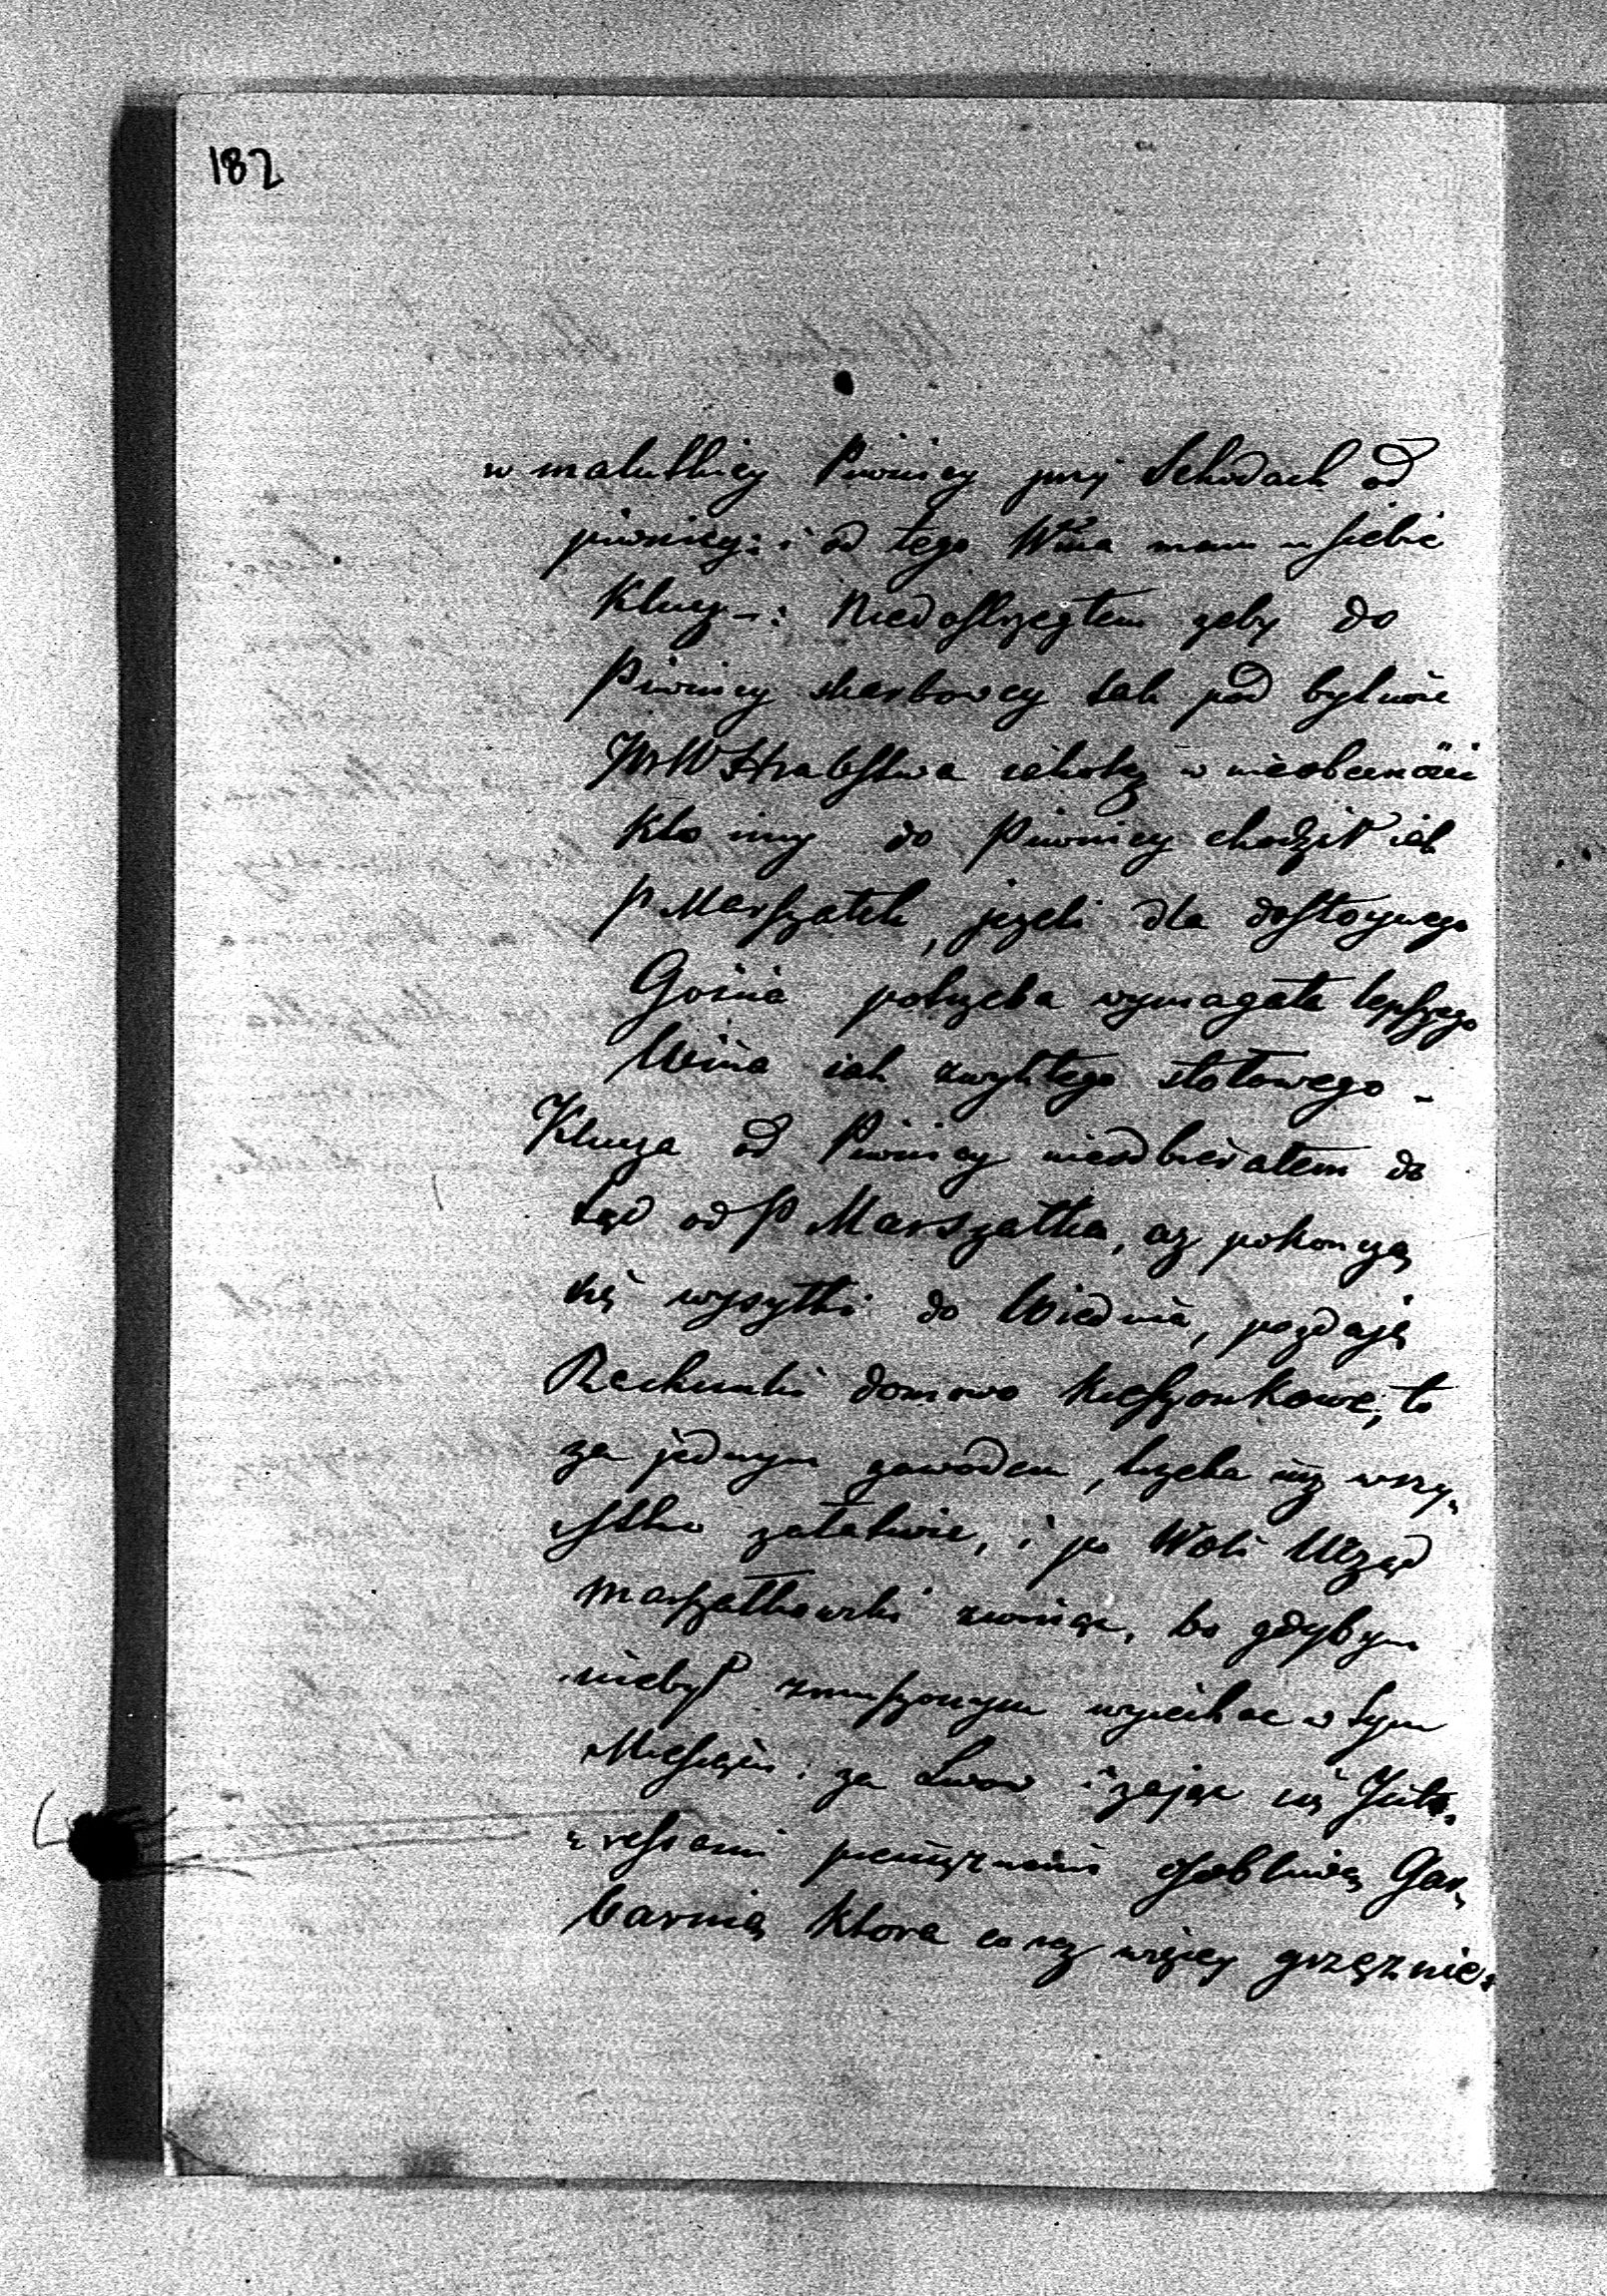 182
w malutkiey Piwnicy przy Schodach od
piwnicy: i od tego Wina mam u siebie
Klucz -: Niedostrzegłem zeby do
Piwnicy skarbowey tak pod bytność
JWW Hrabstwa iakotez w nieobecności
Kto inny do Piwnicy chodził iak
P Marszałek, jezeli dla dostoynego
Gościa potrzeba wymagała lepszego
Wina iak zwykłego stołowego -
Klucza od Piwnicy nieodbierałem do
tąd od P Marszałka, az pokonczą
się wysyłki do Wiednia, pozdają
Rachunki domowo Kieszonkowe, to
za jednym zawodem, trzeba iuz wszy,
stko załatwic, i po Woli Urząd
marszałkowski zwinąc, bo gdybym
niebył zmuszonym wyiechac w tym
Miesiącu za Lwow i zająć się Inte,
ressami pienięznemi osobliwą Gar,
barnią Ktora co raz więcey grzęznie,